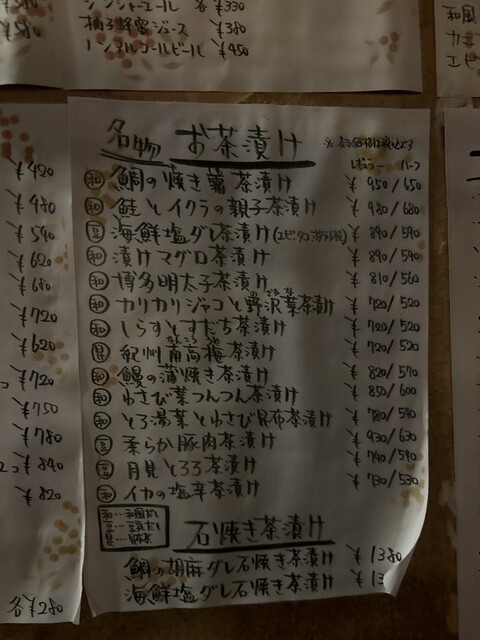 ジンジャーエール 各 ¥330
柚子蜂蜜ジュース ¥380
ノンアルコールビール ¥450
和風
¥420
¥480
¥540
¥620
¥680
¥720
¥620
¥720
¥750
¥780
¥840
¥820
各¥280
名物 お茶漬け
レギュラー ハーフ
和 鯛の焼き 茶漬け ¥950/650
和 鮭とイクラの親子茶漬け ¥980/680
豆 海鮮塩ダレ茶漬け ¥890/590
和 漬けマグロ茶漬け ¥890/590
和 博多明太子茶漬け ¥810/560
和 カリカリジャコと野沢菜茶漬け ¥720/520
和 しらすとすだち茶漬け ¥720/520
昆 紀州南高梅茶漬け ¥720/520
和 鰻の蒲焼き茶漬け ¥820/570
和 わさび葉つんつん茶漬け ¥850/600
和 とろ湯葉とわさび昆布茶漬け ¥780/590
豆 柔らか豚肉茶漬け ¥930/630
豆 月見とろろ茶漬け ¥740/540
和 イカの塩辛茶漬け ¥730/530
和…和風だし
石焼き茶漬け
鯛の胡麻ダレ石焼き茶漬け ¥1380
海鮮塩ダレ石焼き茶漬け ¥13